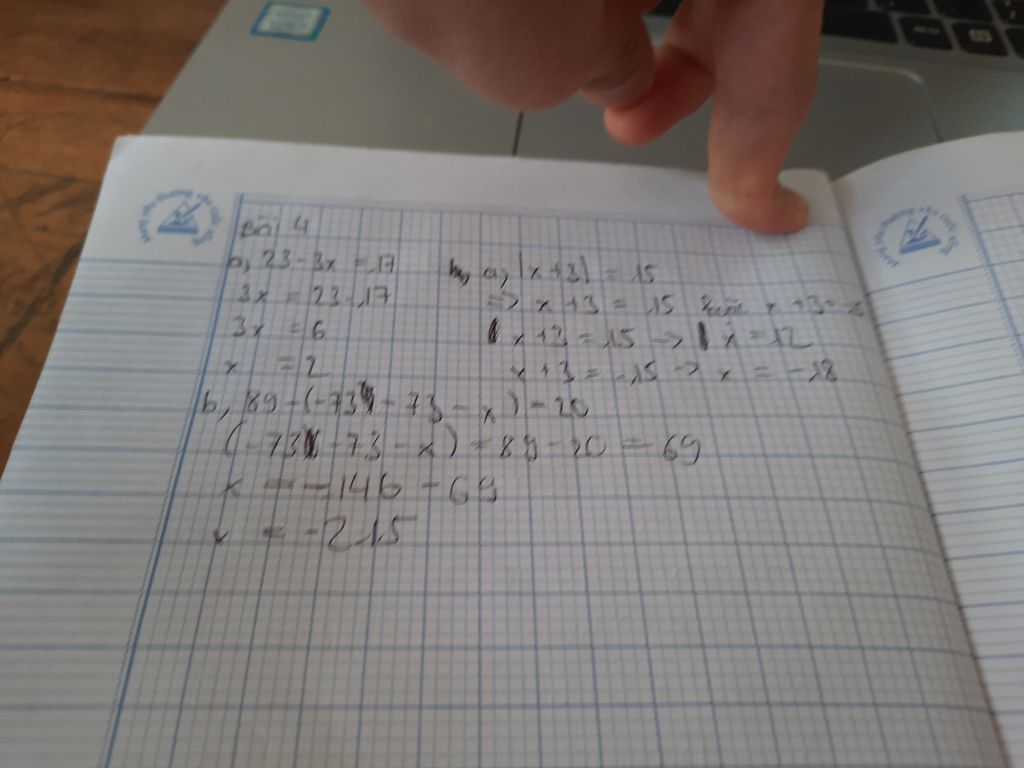 Bài 4
a, 23 - 3x = 17
3x = 23 - 17
3x = 6
x = 2
b, 89 - (-73 - 73 - x) = 20
(-73 - 73 - x) = 89 - 20 = 69
x = -146 - 69
x = -215
a, |x + 3| = 15
=> x + 3 = 15 hoặc x + 3 = -15
x + 3 = 15 -> x = 12
x + 3 = -15 -> x = -18